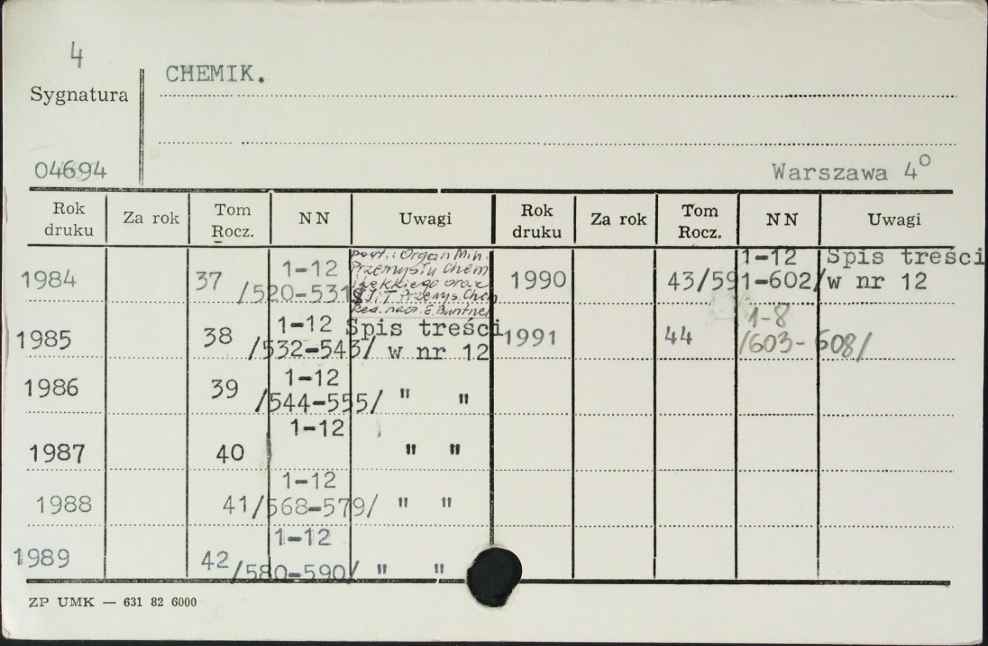 4
CHEMIK.
Sygnatura
04694
Warszawa 4°
Rok druku Za rok Tom Rocz. NN Uwagi Rok druku Za rok Tom Rocz. NN Uwagi
1984 37 1-12 /520-531/
Organ Min.
Przemysłu Chem
i Lekkiego oraz
Przemys. Chem
1990 43/591-602/ 1-12 Spis treści w nr 12
1985 38 1-12 /532-543/ Spis treści w nr 12
1991 44 1-8 /603-608/
1986 39 1-12 /544-555/ " "
1987 40 1-12 " "
1988 41 1-12 /568-579/ " "
1989 42 1-12 /580-590/ " "
ZP UMK — 631 82 6000